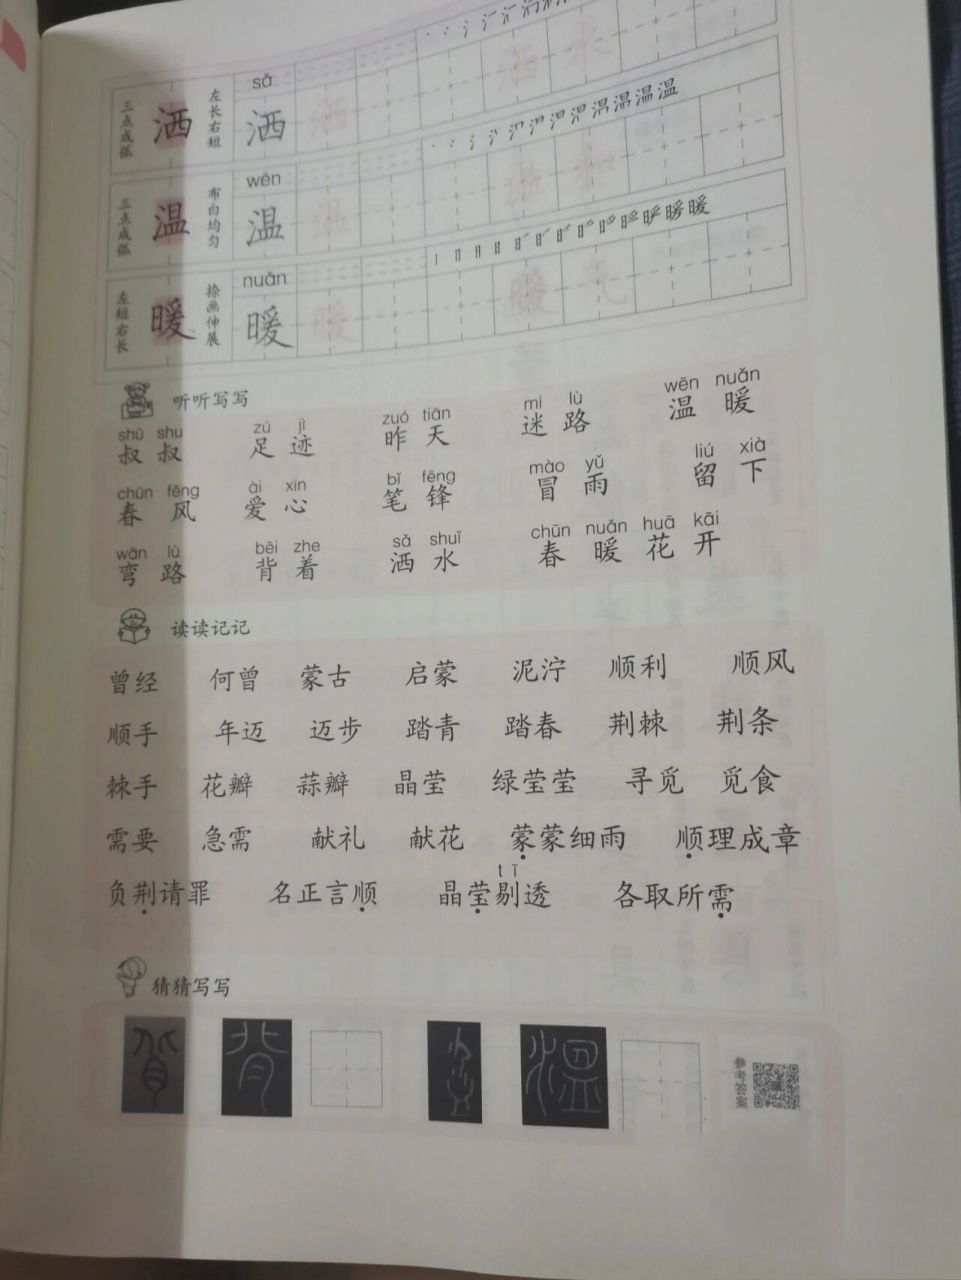 三点成弧 洒 左长右短 sǎ 洒 洒 洒水
三点成弧 温 布白均匀 wēn 温 温 温
左短右长 暖 捺画伸展 nuǎn 暖 暖 暖气
听听写写
shū shu zú jì zuó tiān mí lù wēn nuǎn
叔叔 足迹 昨天 迷路 温暖
chūn fēng ài xīn bǐ fēng mào yǔ liú xià
春风 爱心 笔锋 冒雨 留下
wān lù bēi zhe sǎ shuǐ chūn nuǎn huā kāi
弯路 背着 洒水 春暖花开
读读记记
曾经 何曾 蒙古 启蒙 泥泞 顺利 顺风
顺手 年迈 迈步 踏青 踏春 荆棘 荆条
棘手 花瓣 蒜瓣 晶莹 绿莹莹 寻觅 觅食
需要 急需 献礼 献花 蒙蒙细雨 顺理成章
tī
负荆请罪 名正言顺 晶莹剔透 各取所需
猜猜写写
参考答案